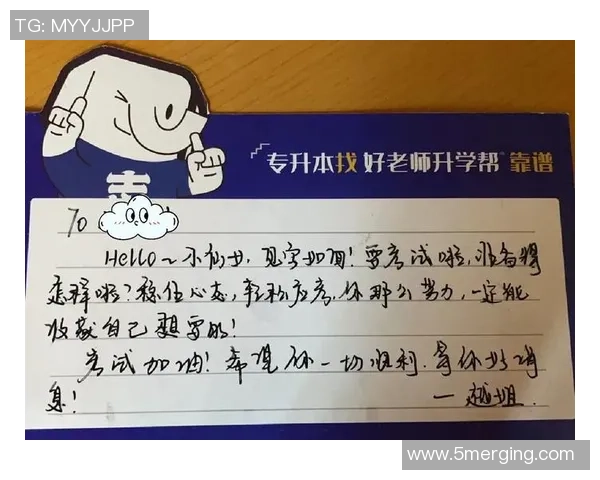 TG: MYYJJPP
专升本找 好老师升学帮 靠谱
志
To
Hello~小仙女,见字如面!要考试啦,准备得
怎样啦?稳住心态,轻松应考,你那么努力,一定能
收获自己想要的!
考试加油!希望你一切顺利.等你好消
息!
一 越姐.
www.5merging.com